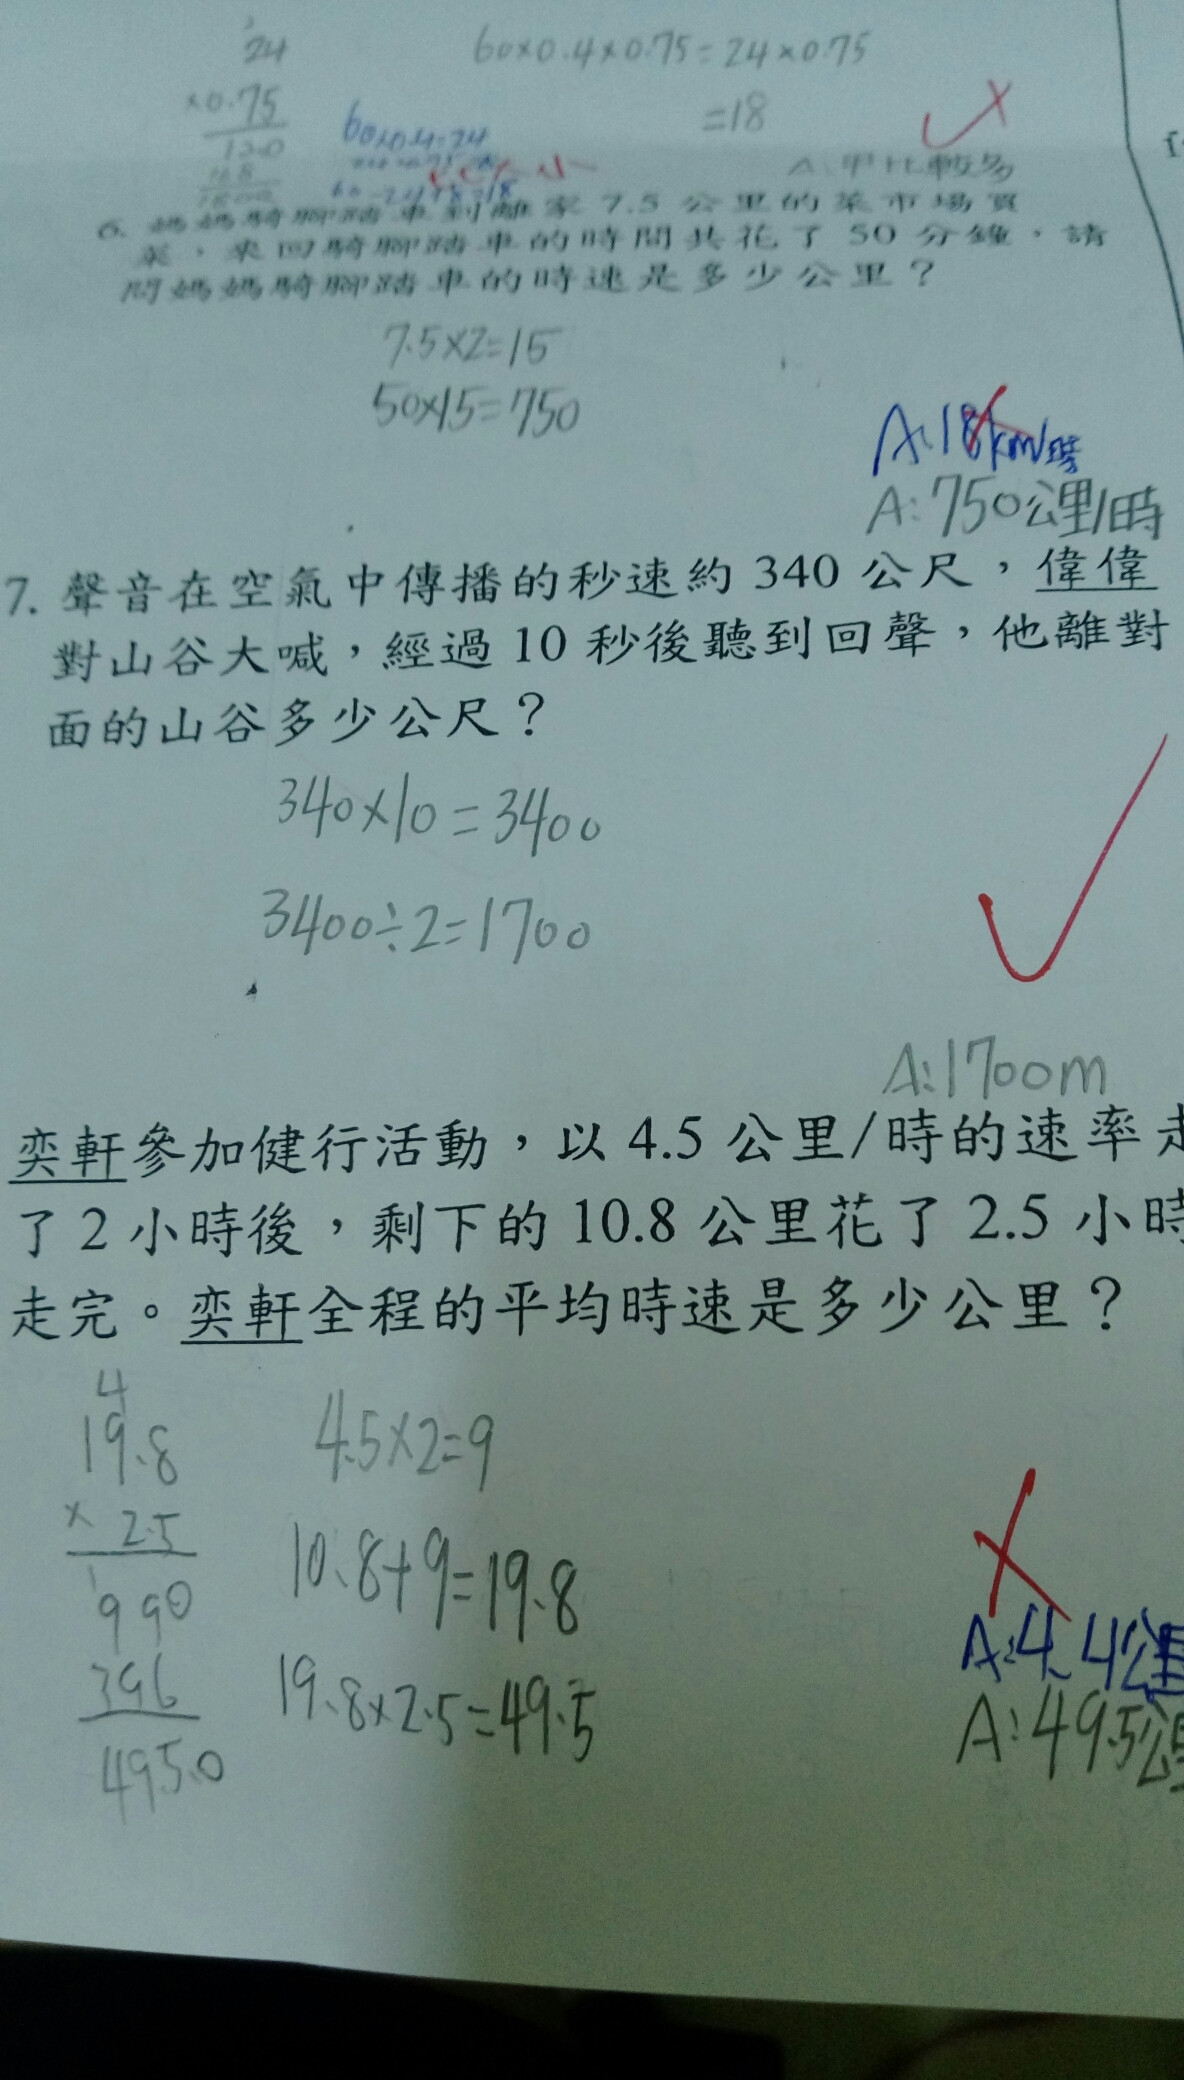 24
60×0.4×0.75=24×0.75
×0.75
=18
120
168
60×0.4=24
A:甲比較多
6. 媽媽騎腳踏車到離家 7.5 公里的菜市場買
菜，來回騎腳踏車的時間共花了 50 分鐘，請
問媽媽騎腳踏車的時速是多少公里？
7.5×2=15
50×15=750
A:18km/時
A:750公里/時
7. 聲音在空氣中傳播的秒速約 340 公尺，偉偉
對山谷大喊，經過 10 秒後聽到回聲，他離對
面的山谷多少公尺？
340×10=3400
3400÷2=1700
A:1700m
奕軒參加健行活動，以 4.5 公里/時的速率走
了 2 小時後，剩下的 10.8 公里花了 2.5 小時
走完。奕軒全程的平均時速是多少公里？
4
19.8
× 2.5
990
396
495.0
4.5×2=9
10.8+9=19.8
19.8×2.5=49.5
A:4.4公里
A:49.5公里